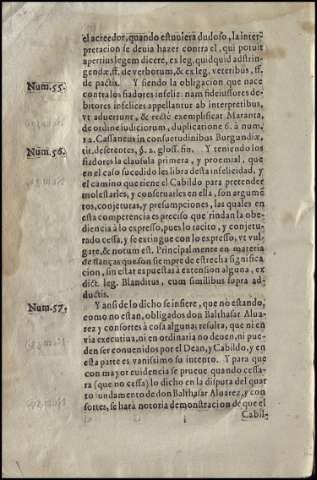 el acreedor, quando estuuiera dudoso, la inter-
pretacion se deuia hazer contra el, qui potuit
apertius legem dicere, ex leg. quidquid adstrin-
gendæ, ff. de verborum, & ex leg. veteribus, ff.
de pactis. Y siendo la obligacion que nace
Num. 55.
contra los fiadores infeliz: nam fideiussores de-
bitores infelices appellantur ab interpretibus,
vt aduertunt, & recte exemplificat Maranta,
de ordine iudiciorum, duplicatione 6. à num.
12. Cassaneus in consuetudinibus Burgundiæ,
tit. de
§. 2. gloss. fin. Y teniendo los
Num. 56.
fiadores la clausula primera, y proemial, que
en el caso sucedido les libra desta infelicidad, y
el camino que tiene el Cabildo para pretender
molestarles, y conseruarles en ella, son argumē
tos, conjeturas, y presumpciones, las quales en
esta competencia es preciso que rindan la obe-
diencia à lo expresso, pues lo tacito, y conjetu-
rado cessa, y se extingue con lo expresso, vt vul-
gare, & notum est. Principalmente en materia
de fianças que son siempre de estrecha significa
cion, sin estar expuestas à extension alguna, ex
dict. leg. Blanditus, cum similibus supra ad-
ductis.
Num. 57.
Y ansi de lo dicho se infiere, que no estando,
como no estan, obligados don Balthasar Alua-
rez y consortes à cosa alguna; resulta, que ni en
via executiua, ni en ordinaria no deuen, ni pue
den ser conuenidos por el Dean, y Cabildo, y en
esta parte es vanissimo su intento. Y para que
con mayor euidencia se prueue quando cessa-
ra (que no cessa) lo dicho en la disputa del quar
to fundamento de don Balthasar Aluarez, y con
sortes, se harà notoria demonstracion de que el
Cabil-